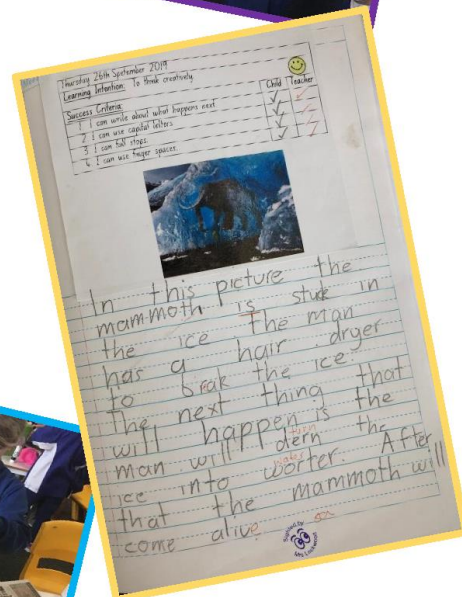 Thursday 26th Spetember 2019
Learning Intention: To think creatively.
Success Criteria: Child Teacher
1. I can write about what happens next.
2. I can use capital letters.
3. I can full stops.
4. I can use finger spaces.
In this picture the
mammoth is stuck in
the ice The man
has a hair dryer
to break the ice.
The next thing that
will happen is the
man will dern the
turn
ice into worter. After
water
that the mammoth will
come alive.